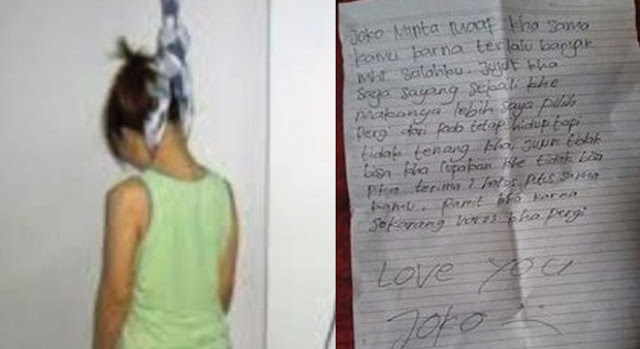 Joko Minta maaf kha sama
kamu karna terlalu banyak
salahku. Jujur kha
saya sayang sekali khe
makanya lebih saya pilih
Pergi dari Pada tetap hidup tapi
tidak tenang kha, Jujur tidak
bisa kha lupakan khe tidak bisa
terima Putus sama
kamu. Pamit kha karna
sekarang harus kha pergi
Love You
Joko